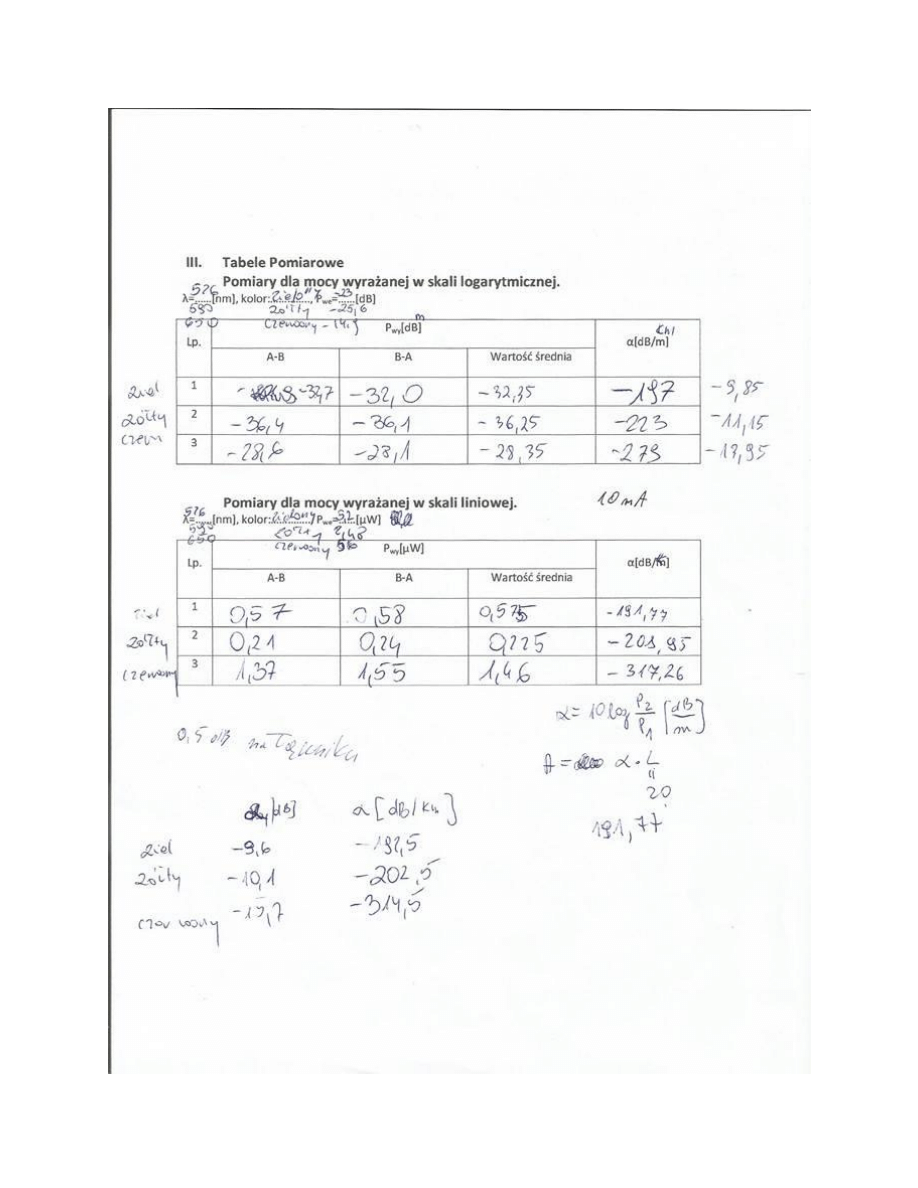 III. Tabele Pomiarowe
Pomiary dla mocy wyrażanej w skali logarytmicznej.
λ=......[nm], kolor:............, Pwe=......[dB]
576 -23
590 żółty -25,6
650 czerwony -14,
Lp. Pwy[dBm] α[dB/km]
A-B B-A Wartość średnia
ziel 1 -32,7 -32,0 -32,35 -197 -9,85
żółty 2 -36,4 -36,1 -36,25 -223 -11,15
czerw 3 -28,6 -28,1 -28,35 -279 -13,95
Pomiary dla mocy wyrażanej w skali liniowej. 10 mA
λ=......[nm], kolor:............, Pwe=......[μW]
576 zielony 52
żółty 2,48
650 czerwony
Lp. Pwy[μW] α[dB/km]
A-B B-A Wartość średnia
ziel 1 0,57 0,58 0,575 -191,77
żółty 2 0,21 0,24 0,225 -201,95
czerwony 3 1,37 1,55 1,46 -317,26
α = 10 log P2/P1 [dB/m]
0,5 dB na łączniku
A = α · L
"
20
191,77
[dB] α [dB/km]
ziel -9,6 -192,5
żółty -10,1 -202,5
czerwony -15,7 -314,5